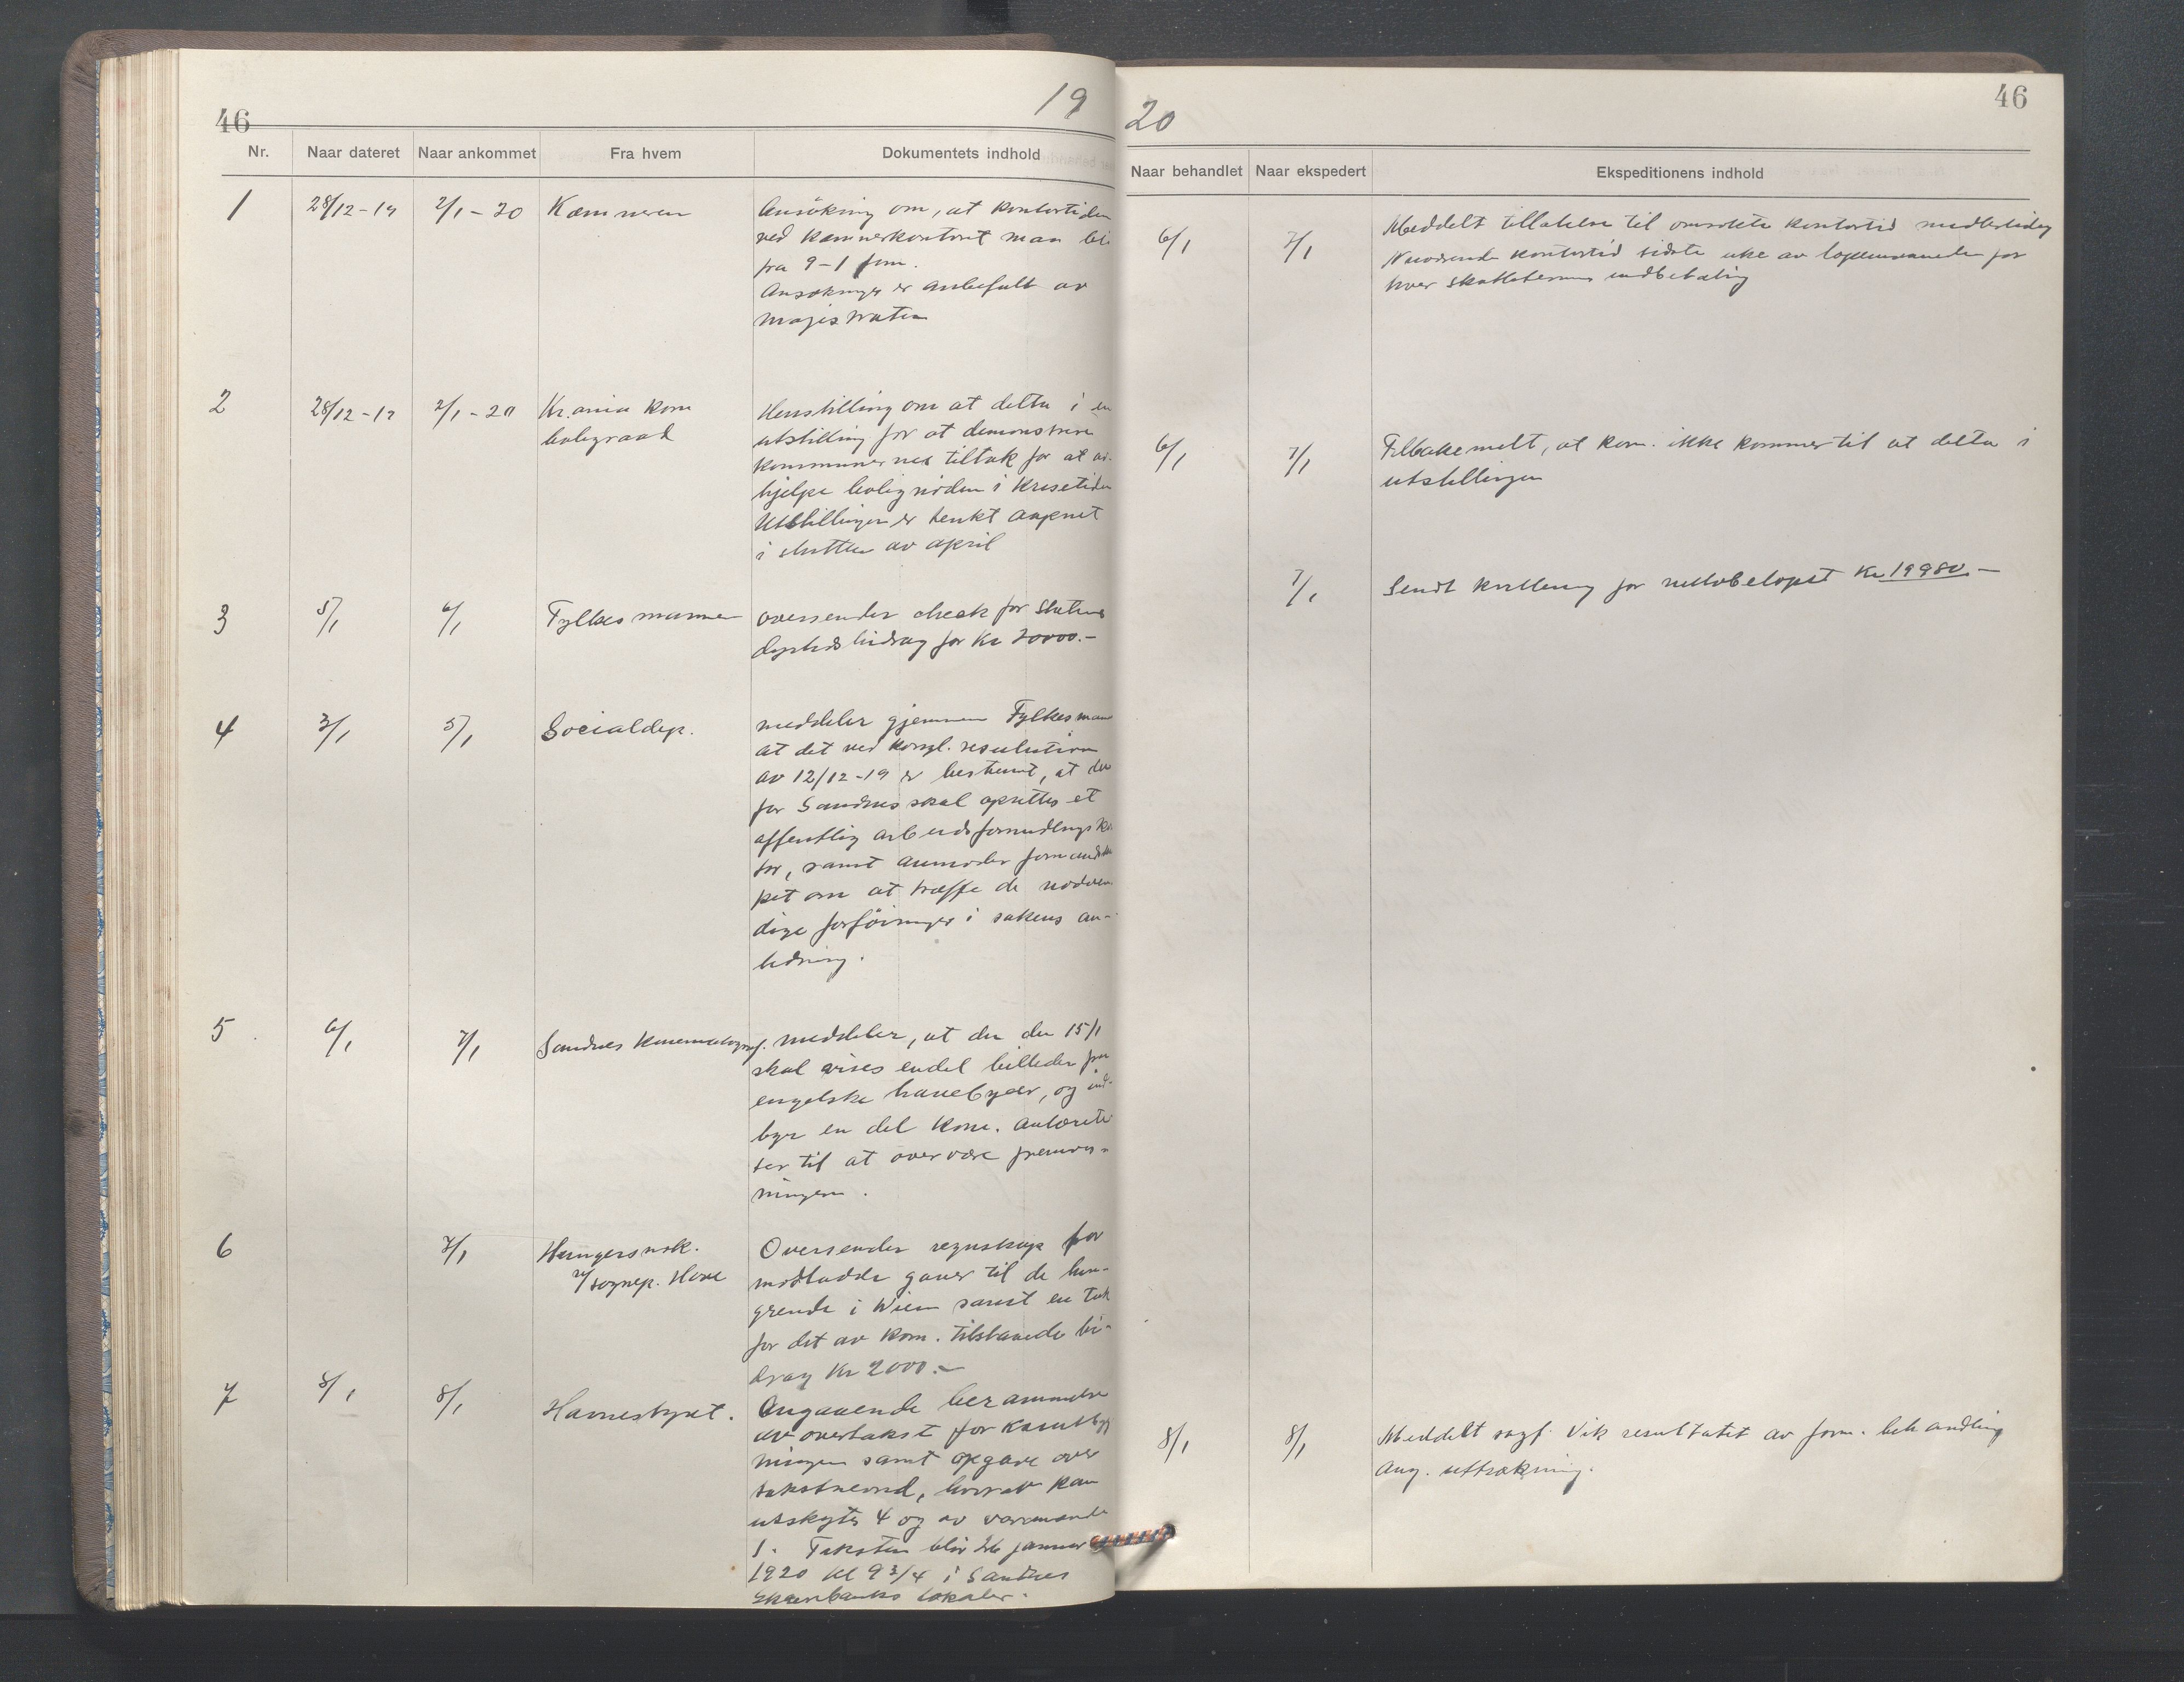 46
19
20
46
Nr.
Naar dateret
Naar ankommet
Fra hvem
Dokumentets indhold
Naar behandlet
Naar ekspedert
Ekspeditionens indhold
1
28/12-19
2/1-20
Kæmneren
Ansökning om, at kontortiden
ved kæmnerkontoret man bli
fra 9-1 fom.
Ansøkningen er anbefalt av
magistraten
6/1
7/1
Meddelt tillatelse til omsøkte kontortid midlertidig
Nuværende kontortid sidste uke av for
hver skattetermins indbetaling
2
28/12-19
2/1-20
Kr.ania kom
boligraad
Henstilling om at delta i en
utstilling for at demonstrere
kommunernes tiltak for at av-
hjelpe bolignöden i krisetiden
Utstillingen er tenkt aapnet
i slutten av april
6/1
7/1
Tilbakemelt, at kom. ikke kommer til at delta i
utstillingen
3
5/1
6/1
Fylkesmannen
oversender check for Statens
dyrtidsbidrag for Kr 20000.-
7/1
Sendt kvittering for nettobeløpet Kr 19980.-
4
3/1
5/1
Socialdep.
meddeler gjennem Fylkesman
at det ved kongl. resolution
av 12/12-19 er bestemt, at der
for Sandnes skal oprettes et
offentlig arbeidsformidlingskon
tor, samt anmoder formandska
pet om at træffe de nødven
dige forföininger i sakens an-
ledning.
5
6/1
7/1
Sandnes Kinematograf.
meddeler, at der den 15/1
skal vises endel billeder fra
engelske havebyer, og ind-
byr en del kom. autorite
ter til at overvære fremvis-
ningen.
6
7/1
Hungersnök.
v/sognep. Hove
Oversender regnskap for
mottadde gaver til de hun-
grende i Wien samt en tak
for det av kom. tilstaaede bi-
drag Kr 2000.-
7
8/1
8/1
Havnestyret.
Angaaende berammelse
av overtakst for
ningen samt opgave over
takstmænd, hvorav kan
utskytes 4 og av varamænde
1. Taksten blir 26 januar
1920 kl 9 3/4 i Sandnes
Sparebanks lokaler.
8/1
8/1
Meddelt sagf. Vik resultatet av form. behandling
ang. uttrækning.